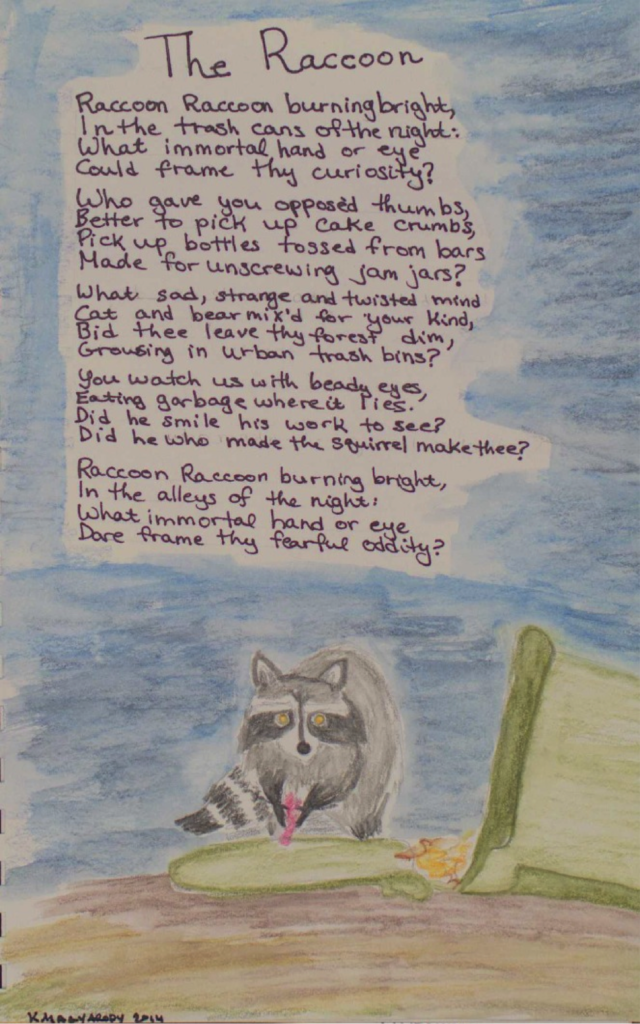 The Raccoon
Raccoon Raccoon burning bright,
In the trash cans of the night:
What immortal hand or eye
Could frame thy curiosity?
Who gave you opposed thumbs,
Better to pick up cake crumbs,
Pick up bottles tossed from bars
Made for unscrewing jam jars?
What sad, strange and twisted mind
Cat and bear mix'd for your kind,
Bid thee leave thy forest dim,
Grousing in urban trash bins?
You watch us with beady eyes,
Eating garbage where it lies.
Did he smile his work to see?
Did he who made the squirrel make thee?
Raccoon Raccoon burning bright,
In the alleys of the night:
What immortal hand or eye
Dare frame thy fearful oddity?
K MAGYARODY 2014